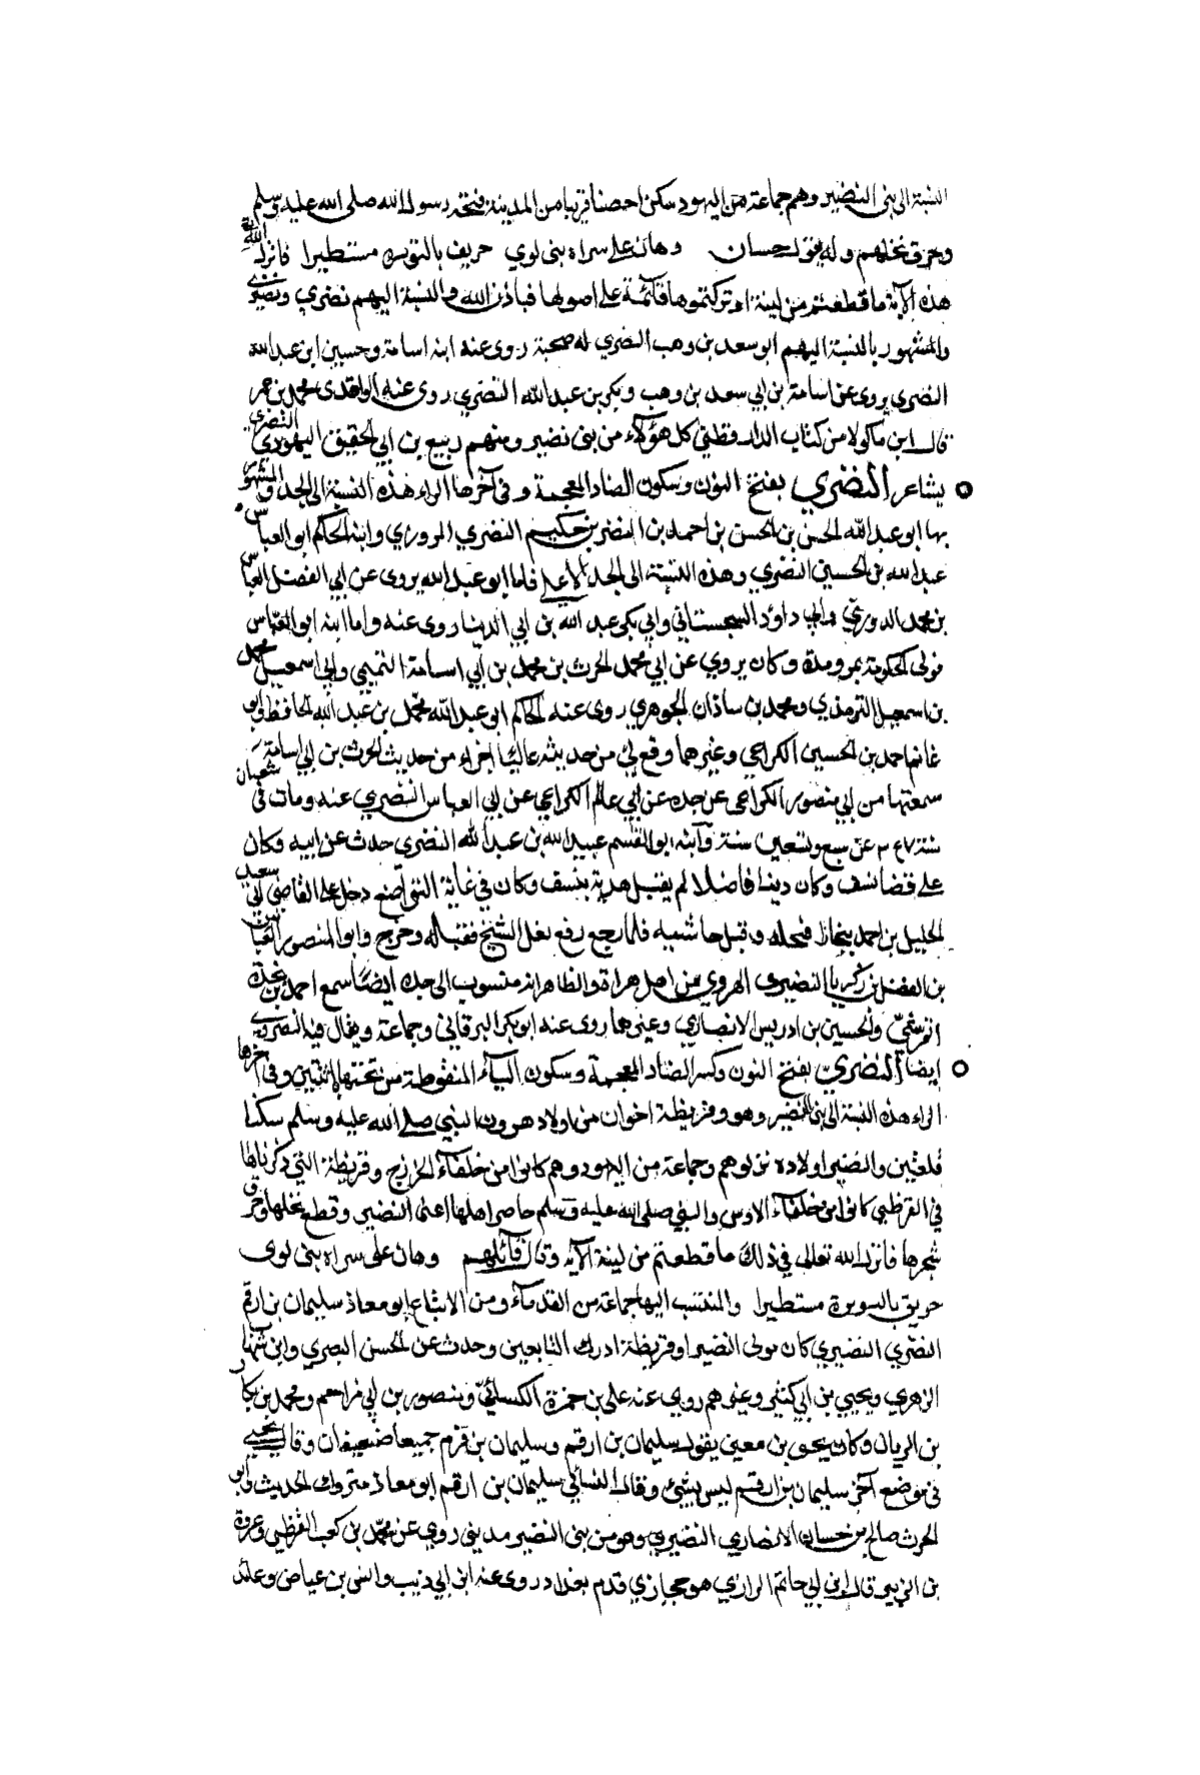 النسبة الى بنى النضير وهم جماعة من اليهود سكنوا حصنا قريبا من المدينة فتحه رسول الله صلى الله عليه وسلم
وحرق نخلهم وله يقول حسان وهان على سراة بنى لوي حريق بالبويرة مستطيرا فانزل الله
هذه الآية ما قطعتم من لينة او تركتموها قائمة على اصولها فباذن الله والنسبة اليهم نضري ونضيري
والمشهور بالنسبة اليهم ابو سعد بن وهب النضري له صحبة روى عنه ابنه اسامة وحسين ابن عبد الله
النضري يروى عن اسامة بن ابي سعد بن وهب وبكر بن عبد الله النضري روى عنه الواقدى محمد بن عمر
قال ابن ماكولا من كتاب الدارقطني كل هؤلاء من بنى نضير ومنهم ربيع بن ابي الحقيق اليهودي النضري
يشاعر النضري بفتح النون وسكون الضاد المعجمة وفى آخرها الراء هذه النسبة الى الجد والمشهور
بها ابو عبد الله الحسن بن الحسن بن احمد بن النضر بن حكيم النضري المروزي وابنه الحاكم ابو العباس
عبد الله بن الحسين النضري وهذه النسبة الى الجد الاعلى فاما ابو عبد الله يروى عن ابي الفضل العباس
بن محمد الدوري وابي داود السجستاني وابي بكر عبد الله بن ابي الدنيا روى عنه واما ابنه ابو العباس
فولى الحكومة بمرو مدة وكان يروي عن ابي محمد الحرث بن محمد بن ابي اسامة التميمي وابي اسمعيل محمد
بن اسمعيل الترمذي ومحمد بن ساذان الجوهري روى عنه الحاكم ابو عبد الله محمد بن عبد الله الحافظ وابو
غانم احمد بن الحسين الكراعي وغيرهما وقع لي من حديثه عاليا اجزاء من حديث الحرث بن ابي اسامة
سمعتها من ابي منصور الكراعى عن جده عن ابي غانم الكراعي عن ابي العباس النضري عنه ومات فى شعبان
سنة ٣٤٧ عن سبع وتسعين سنة وآبنه ابو القسم عبيد الله بن عبد الله النضري حدث عن ابيه وكان
على قضا نسف وكان دينا فاضلا لم يقبل هدية بنسف وكان في غاية التواضع دخل على القاضى ابي سعيد
الخليل بن احمد ببخارا فقبله وقبل حاشيه فلما رجع رفع نعل الشيخ فقبله وخرج وابو المنصور العباس
بن الفضل بن زكريا النضيرى الهروي من اهل هراة والظاهر انه منسوب الى جده ايضا سمع احمد بن نجدة
القرشيّ والحسين بن ادريس الانصاري وغيرهما روى عنه ابو بكر البرقاني وجماعة ويقال فيه النضروى
ايضا النضريّ بفتح النون وكسر الضاد المعجمة وسكون الياء المنقوطة من تحتها باثنتين وفى آخرها
الراء هذه النسبة الى بنى النضير وهو وقريظة اخوان من اولاد هرون النبي صلى الله عليه وسلم سكنا
قلعتين والنضير اولاده نزلوهم وجماعة من اليهود وهم كانوا من حلفاء الخزرج وقريظة التي ذكرناها
في القرظي كانوا من حلفاء الاوس والنبي صلى الله عليه وسلم حاصر اهلها اعنى النضير وقطع نخلها وحرق
شجرها فانزل الله تعالى في ذلك ما قطعتم من لينة الآية وقال قائلهم وهان على سراة بنى لوى
حريق بالبويرة مستطيرا والمنتسب اليها جماعة من القدماء ومن الاتباع ابو معاذ سليمان بن ارقم
النضري النضيري كان مولى النضير او قريظة ادرك التابعين وحدث عن الحسن البصري وابن شهاب
الزهري ويحيي بن ابي كثير وغيرهم روى عنه على بن حمزة الكسائيّ ومنصور بن ابي مزاحم ومحمد بن بكار
بن الريان وكان يحيى بن معين يقول سليمان بن ارقم وسليمان بن قرم جميعا ضعيفان وقال يحيي
فى موضع آخر سليمان بن ارقم ليس بشئ وقال النسائي سليمان بن ارقم ابو معاذ متروك الحديث وابو
الحرث صالح بن حسان الانصاري النضيري وهو من بنى النضير مديني روي عن محمد بن كعب القرظي وعروة
بن الزبير قال ابن ابي حاتم الرازي هو حجازي قدم بغداد روى عنه ابن ابي ذيب وانس بن عياض وعائذ